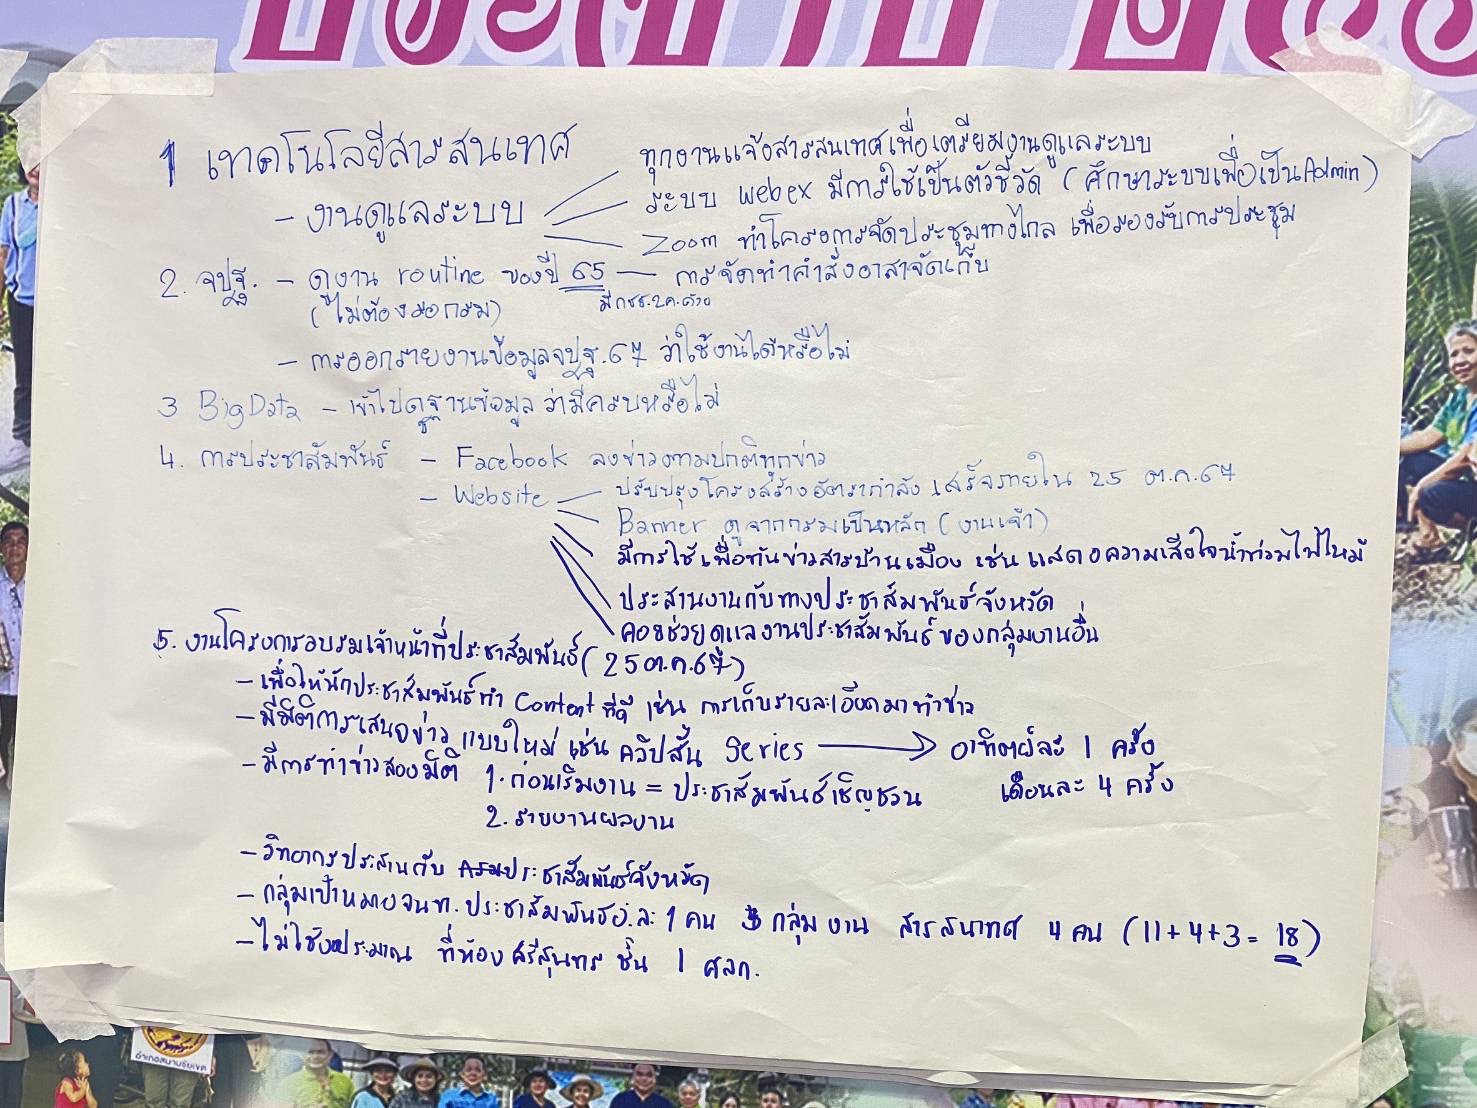 1 เทคโนโลยีสารสนเทศ
- งานดูแลระบบ
ทุกงานแจ้งสารสนเทศเพื่อเตรียมงานดูแลระบบ
ระบบ webex มีการใช้เป็นตัวชี้วัด (ศึกษาระบบเพื่อเป็น Admin)
Zoom ทำโครงการจัดประชุมทางไกล เพื่อรองรับการประชุม
2. จปฐ. - ดูงาน routine ของปี 65 — การจัดทำคำสั่งอาสาจัดเก็บ
(ไม่ต้องรอกรม) มี กชช.2ค.ด้วย
- การออกรายงานข้อมูลจปฐ.67 ว่าใช้งานได้หรือไม่
3 BigData - เข้าไปดูฐานข้อมูล ว่ามีครบหรือไม่
4. การประชาสัมพันธ์ - Facebook ลงข่าวตามปกติทุกข่าว
- Website
ปรับปรุงโครงสร้างอัตรากำลัง เสร็จภายใน 25 ต.ค.67
Banner ดูจากกรมเป็นหลัก (งานเจ้า)
มีการใช้เพื่อทันข่าวสารบ้านเมือง เช่น แสดงความเสียใจน้ำท่วมไฟไหม้
ประสานงานกับทางประชาสัมพันธ์จังหวัด
คอยช่วยดูแลงานประชาสัมพันธ์ของกลุ่มงานอื่น
5. งานโครงการอบรมเจ้าหน้าที่ประชาสัมพันธ์ (25 ต.ค.67)
- เพื่อให้นักประชาสัมพันธ์ทำ Content ที่ดี เช่น การเก็บรายละเอียดมาทำข่าว
- มีมิติการเสนอข่าว แบบใหม่ เช่น คลิปสั้น Series → อาทิตย์ละ 1 ครั้ง
เดือนละ 4 ครั้ง
- มีการทำข่าวสองมิติ 1. ก่อนเริ่มงาน = ประชาสัมพันธ์เชิญชวน
2. รายงานผลงาน
- วิทยากรประสานกับ ประชาสัมพันธ์จังหวัด
- กลุ่มเป้าหมาย จนท. ประชาสัมพันธ์อ.ละ 1 คน 3 กลุ่มงาน สารสนเทศ 4 คน (11+4+3 = 18)
- ไม่ใช้งบประมาณ ที่ห้อง ศรีสุนทร ชั้น 1 ศลก.
อำเภอสนามชัยเขต